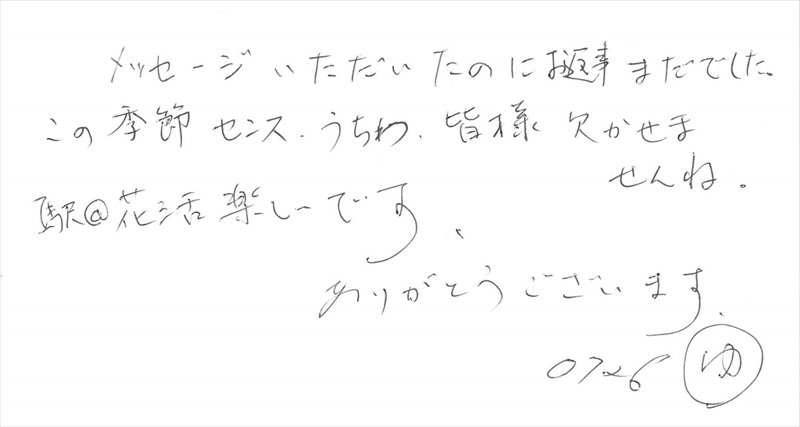 メッセージいただいたのにお返事まだでした。
この季節センス、うちわ、皆様欠かせま
せんね。
駅@花活楽しーです、
ありがとうございます、
0726 ゆ